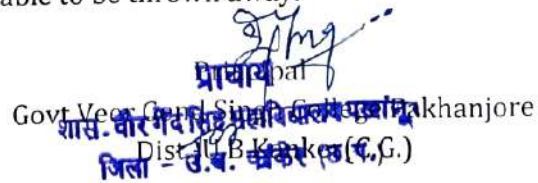 able to be thrown away.
प्राचार्य
Principal
Govt Veer Gend Singh College Pakhanjore
शास. वीर गेंद सिंह महाविद्यालय पखांजूर
Dist. U.B Kanker (C.G.)
जिला - उ.ब. कांकेर (छ.ग.)